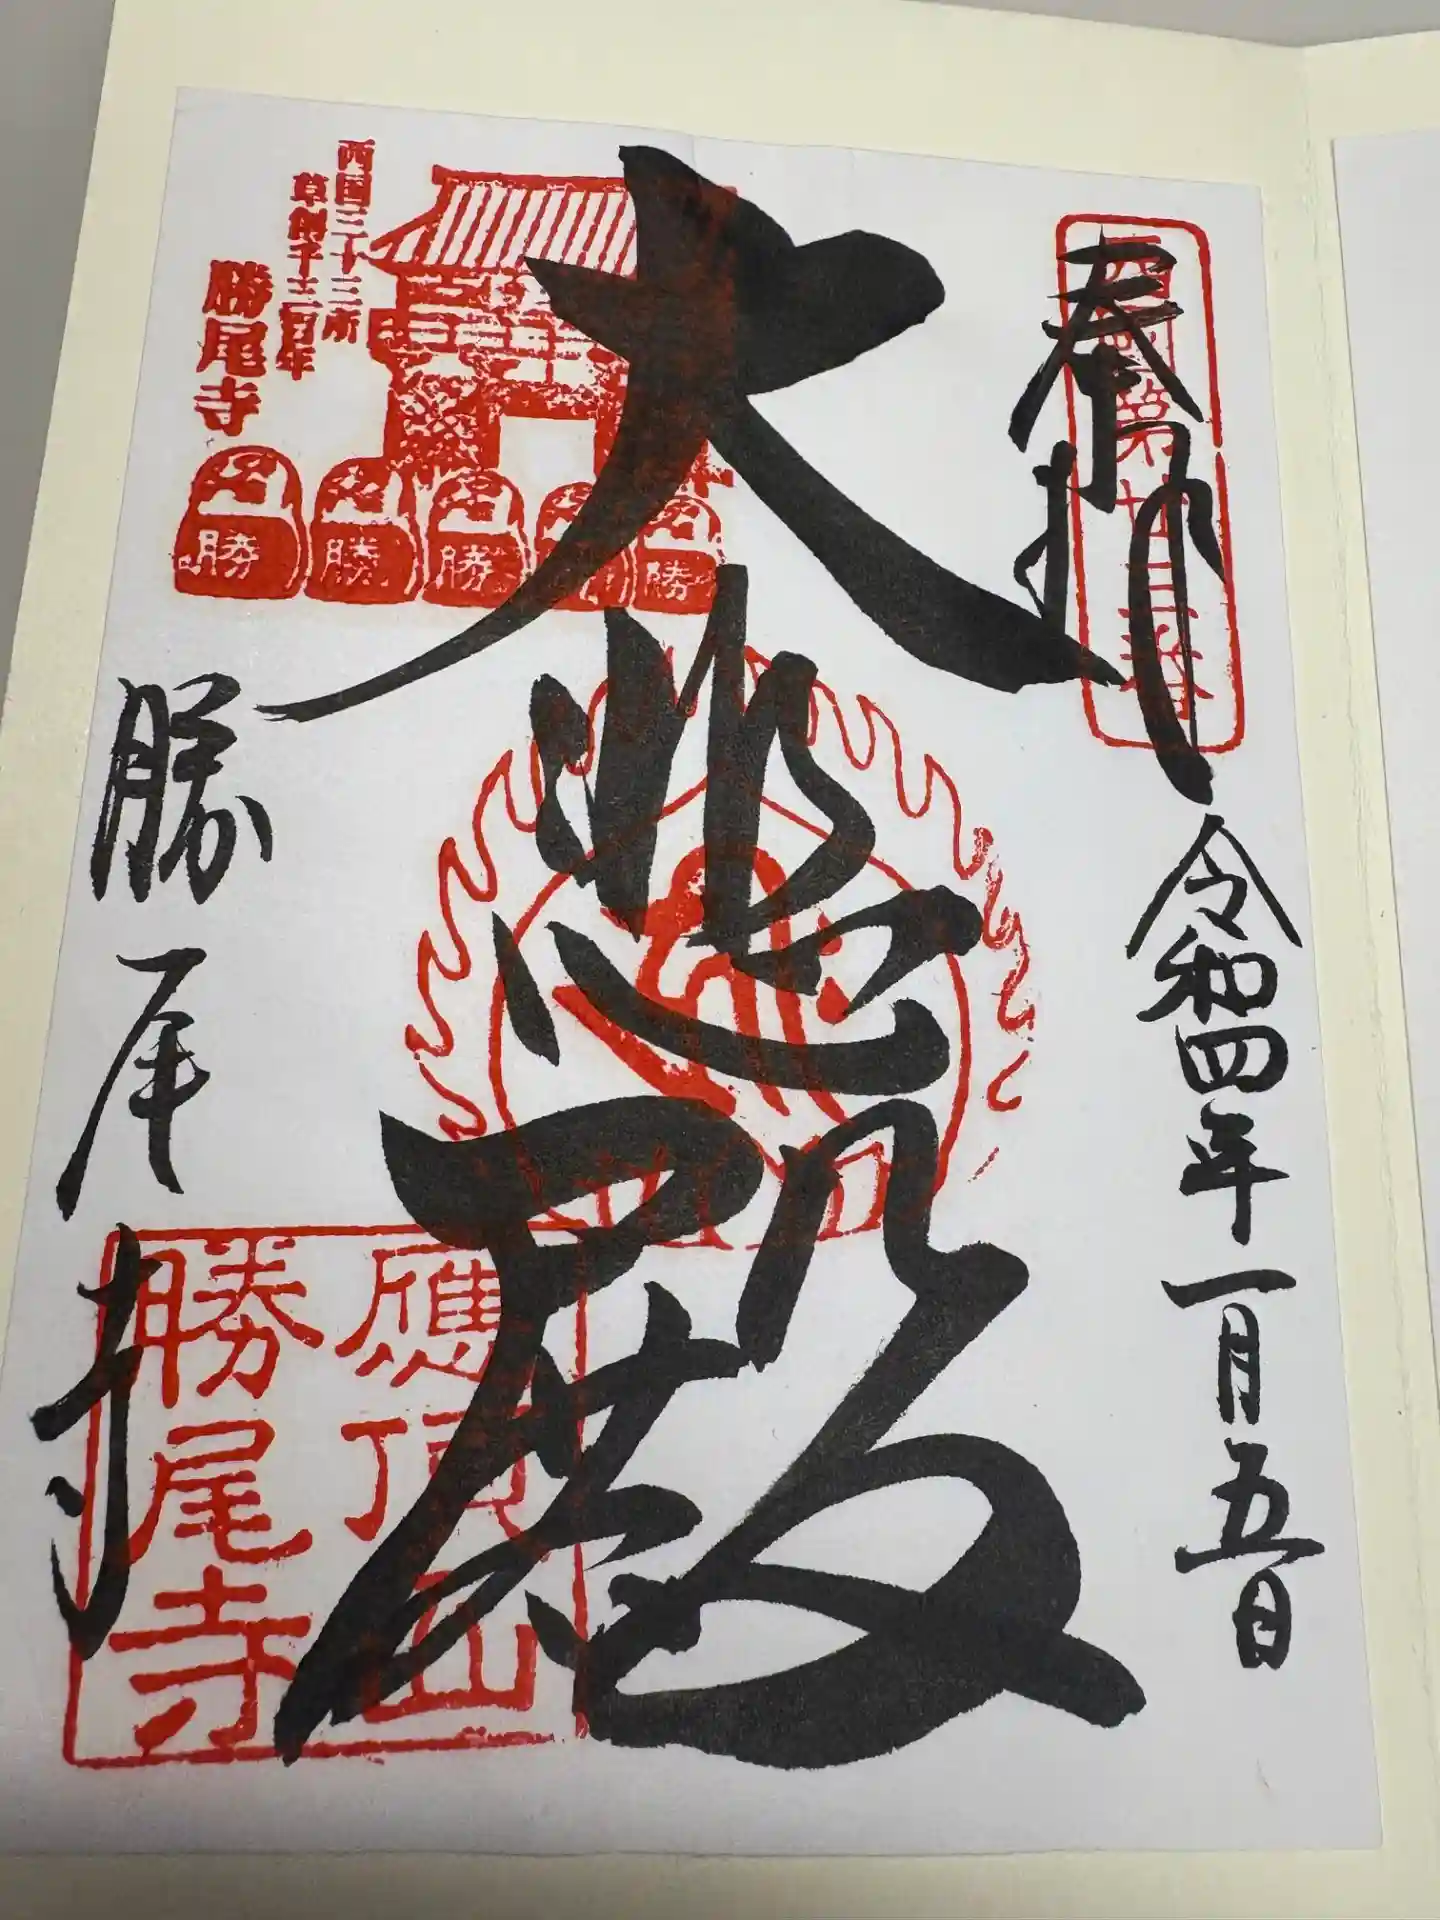 奉拝
西国第廿三番
令和四年一月五日
大悲殿
西国三十三所
草創千三百年
勝尾寺
勝
勝
勝
勝
勝
應頂山
勝尾寺
勝尾寺